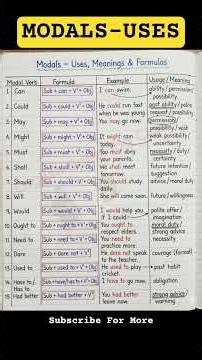 MODALS-USES
Modals – Uses, Meanings & Formulas
Modal Verb Formula Example Usage / Meaning
1 Can Sub + can + V¹ + Obj I can swim. ability / permission / possibility
2 Could Sub + could + V¹ + Obj He could run fast when he was young. past ability / polite request / possibility
3 May Sub + may + V¹ + Obj You may go now. permission / possibility / wish
4 Might Sub + might + V¹ + Obj It might rain today. weak possibility / uncertainty
5 Must Sub + must + V¹ + Obj You must obey your parents. necessity / duty / certainty
6 Shall Sub + shall + V¹ + Obj We shall meet tomorrow. future intention / suggestion
7 Should Sub + should + V¹ + Obj You should study daily. advice / moral duty
8 Will Sub + will + V¹ + Obj She will come soon. future / willingness
9 Would Sub + would + V¹ + Obj I would help you if I could. polite offer / imagination
10 Ought to Sub + ought to + V¹ + Obj You ought to respect elders. moral duty / strong advice
11 Need to Sub + need to + V¹ + Obj You need to practice more. necessity
12 Dare Sub + dare not + V¹ He dare not speak to the teacher. courage (formal)
13 Used to Sub + used to + V¹ + Obj He used to play cricket. past habit
14 Have to / Has to Sub + have/has to + V¹ + Obj I have to go now. obligation
15 Had better Sub + had better + V¹ You had better leave now. strong advice / warning
Subscribe For More